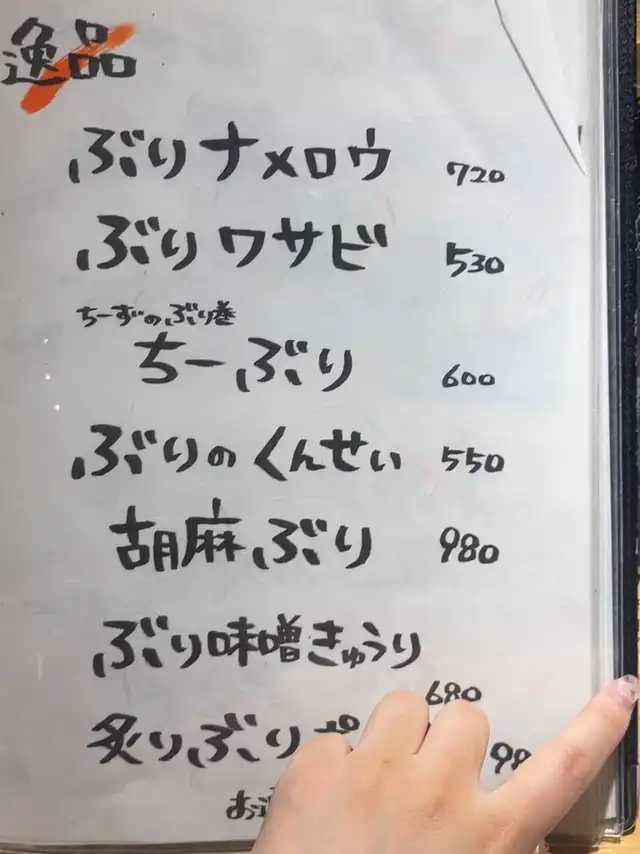 逸品
ぶりナメロウ 720
ぶりワサビ 530
ちーずのぶり巻
ちーぶり 600
ぶりのくんせい 550
胡麻ぶり 980
ぶり味噌きゅうり
680
炙りぶり